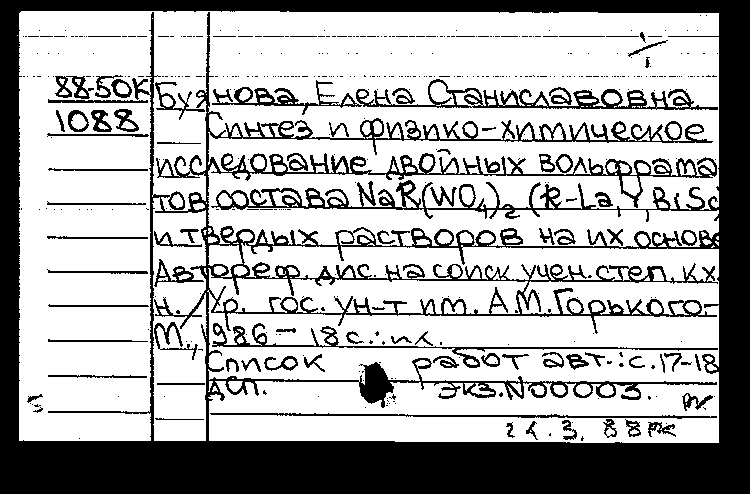 1/1
88-50К Буянова, Елена Станиславовна
1088 Синтез и физико-химическое
исследование двойных вольфрама-
тов состава NaR(WO₄)₂ (R-La, Y, Bi Sc)
и твердых растворов на их основе
Автореф. дис. на соиск учен. степ. к.х.
н. / Ур. гос. ун-т им. А.М. Горького-
М., 1986 - 18 с.: ил.
Список работ авт.: с. 17-18
ДСП. экз. N00003.
24.3.88